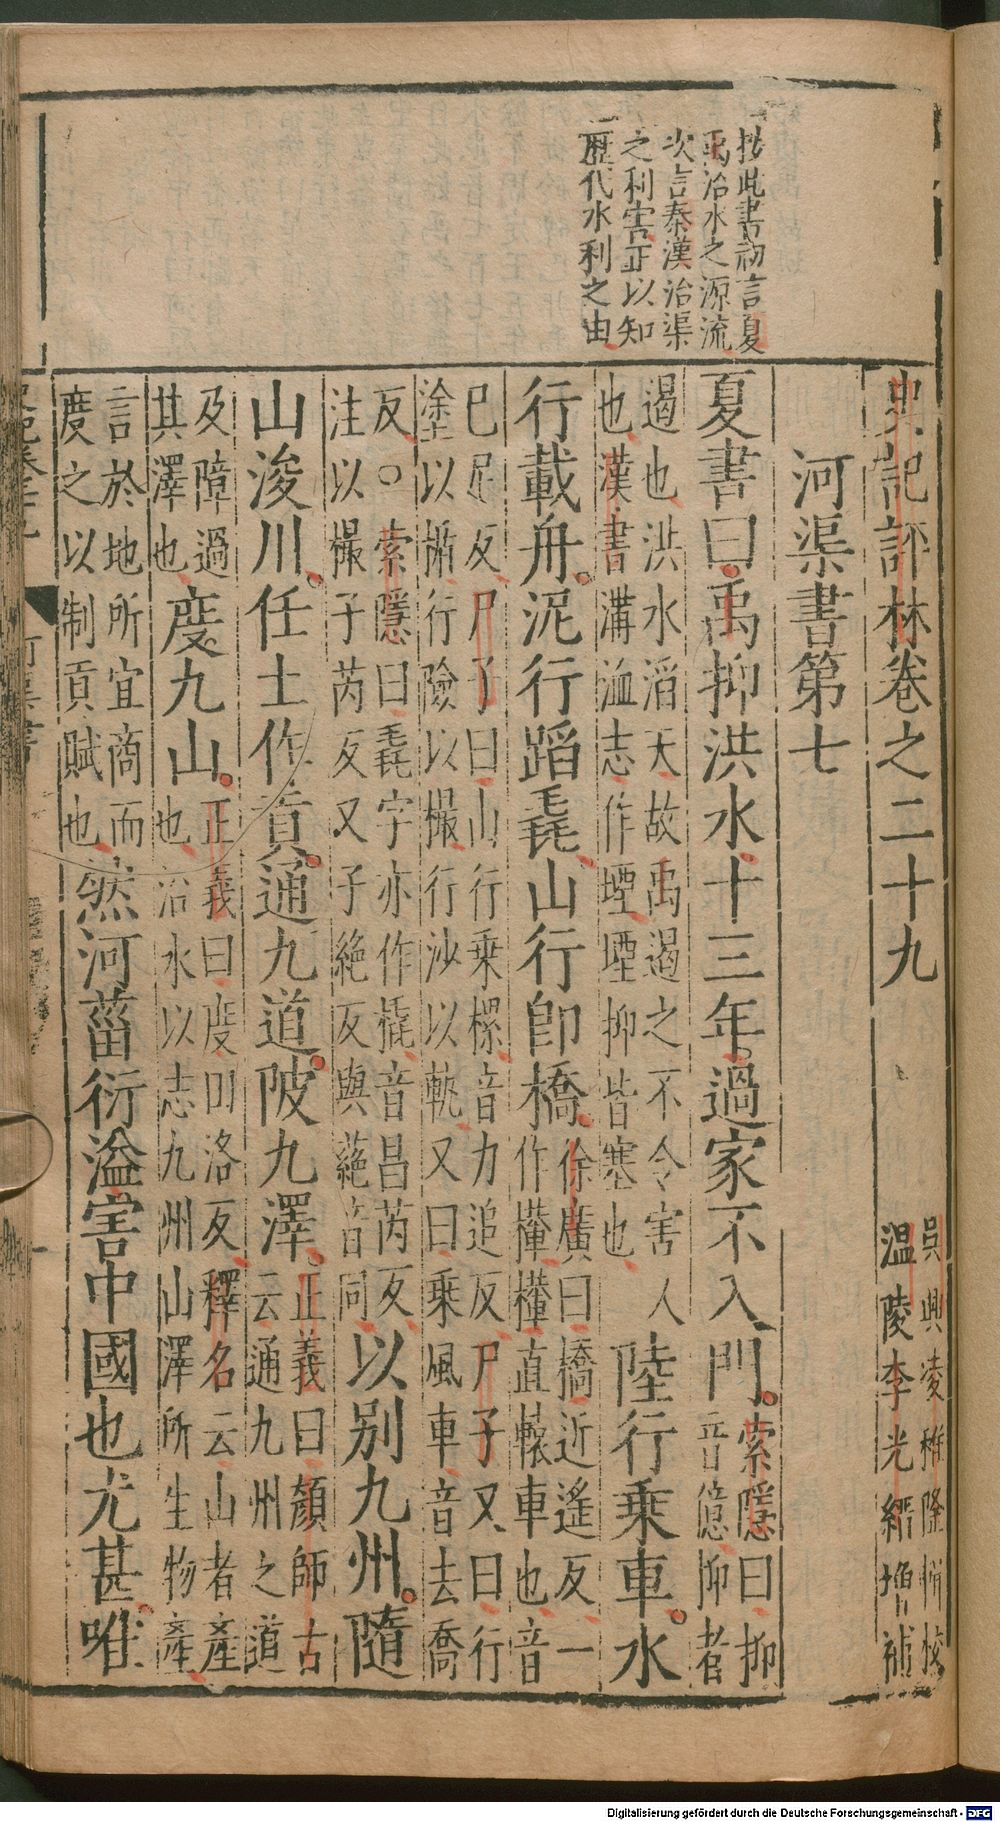 按此書初言夏
禹治水之源流
次言秦漢治渠
之利害正以知
歷代水利之由
史記評林卷之二十九
吳興凌稚隆輯校
溫陵李光縉增補
河渠書第七
夏書曰禹抑洪水十三年過家不入門索隱曰抑
音億抑者
遏也洪水滔天故禹遏之不令害人
也漢書溝洫志作堙堙抑皆塞也
陸行乘車水
行載舟泥行蹈毳山行卽橋徐廣曰橋近遙反一
作檋檋直轅車也音
已足反尸子曰山行乘樏音力追反尸子又曰行
塗以楯行險以樶行沙以軌又曰乘風車音去喬
反○索隱曰毳字亦作橇音昌芮反
注以樶子芮反又子絕反與蕝音同
以别九州隨
山浚川任土作貢通九道陂九澤正義曰顏師古
云通九州之道
及障遏
其澤也
度九山正義曰度田洛反釋名云山者產
也治水以志九州山澤所生物產
言於地所宜商而
度之以制貢賦也
然河菑衍溢害中國也尤甚唯
河渠書
一
Digitalisierung gefördert durch die Deutsche Forschungsgemeinschaft - DFG